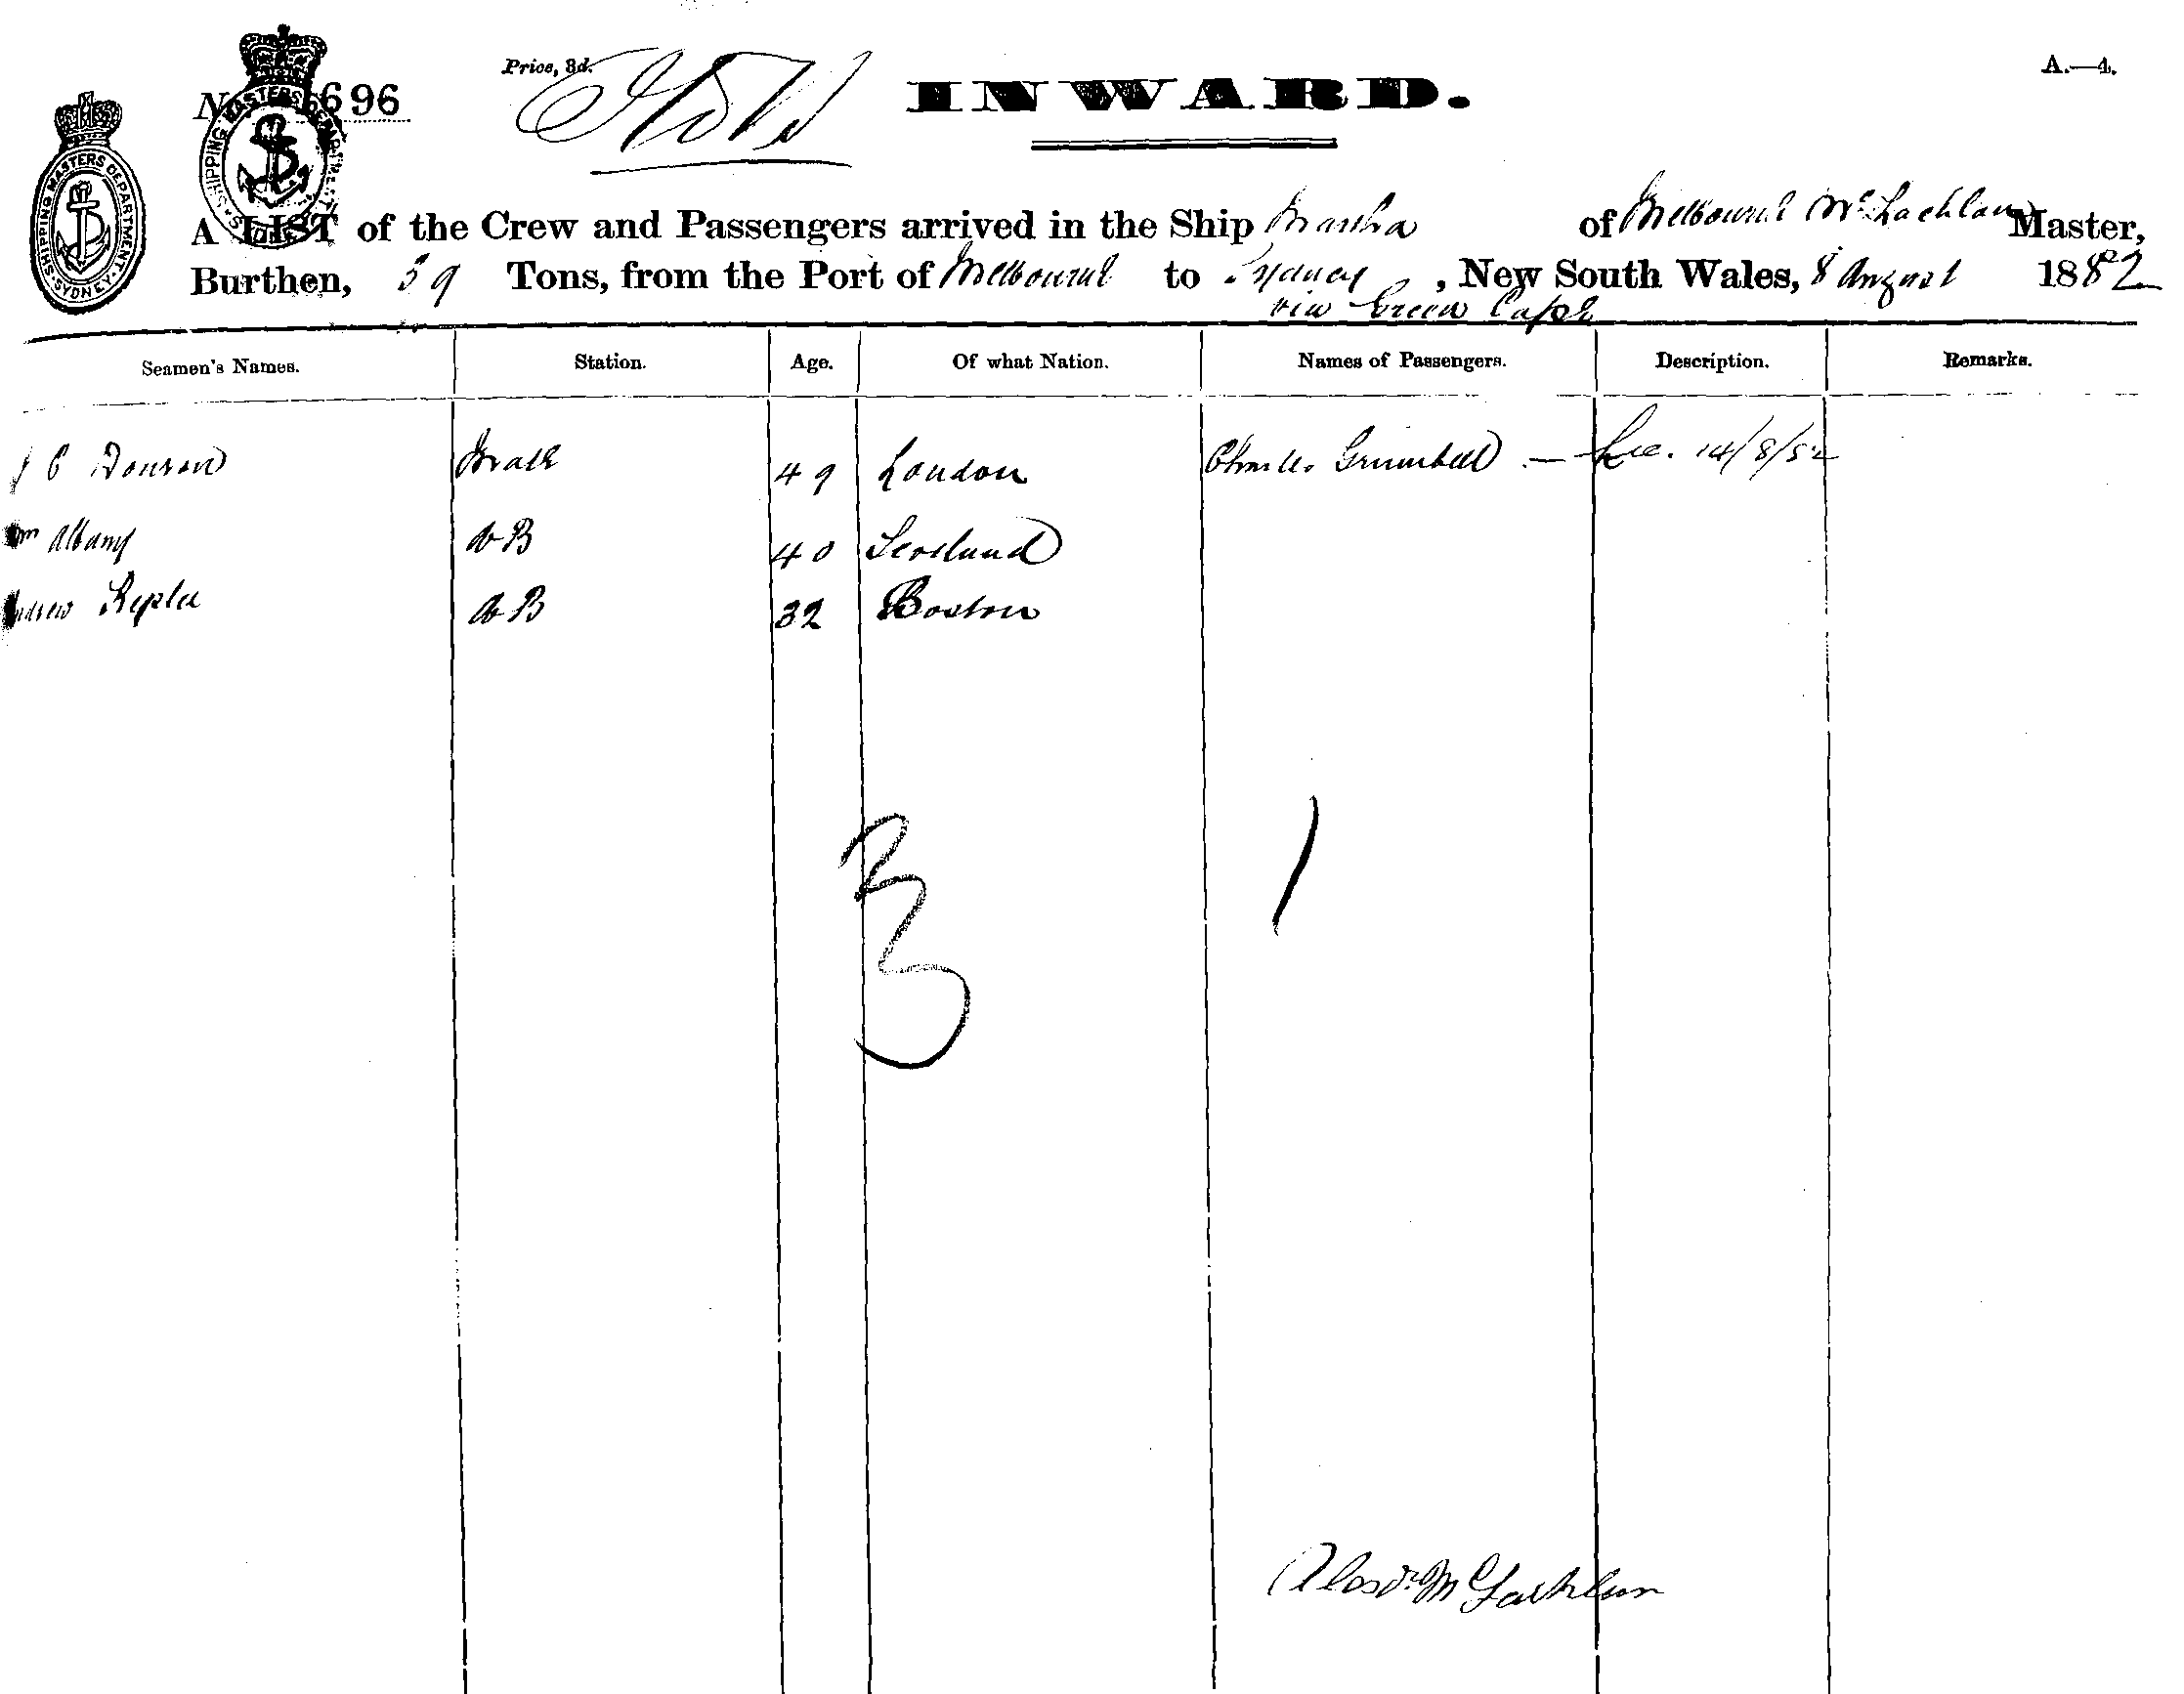 Price, 3d.
INWARD.
A.—4.
696
SHIPPING MASTERS DEPARTMENT
SYDNEY
A LIST of the Crew and Passengers arrived in the Ship Martha of Melbourne McLachlan Master,
Burthen, 59 Tons, from the Port of Melbourne to Sydney, New South Wales, 8 August 1882
via Green Cape
Seamen's Names. Station. Age. Of what Nation. Names of Passengers. Description. Remarks.
Mate 49 London Charles 14/8/82
Wm Albany AB 40 Scotland
Andrew AB 32 Boston
3 1
Alexdr McLachlan